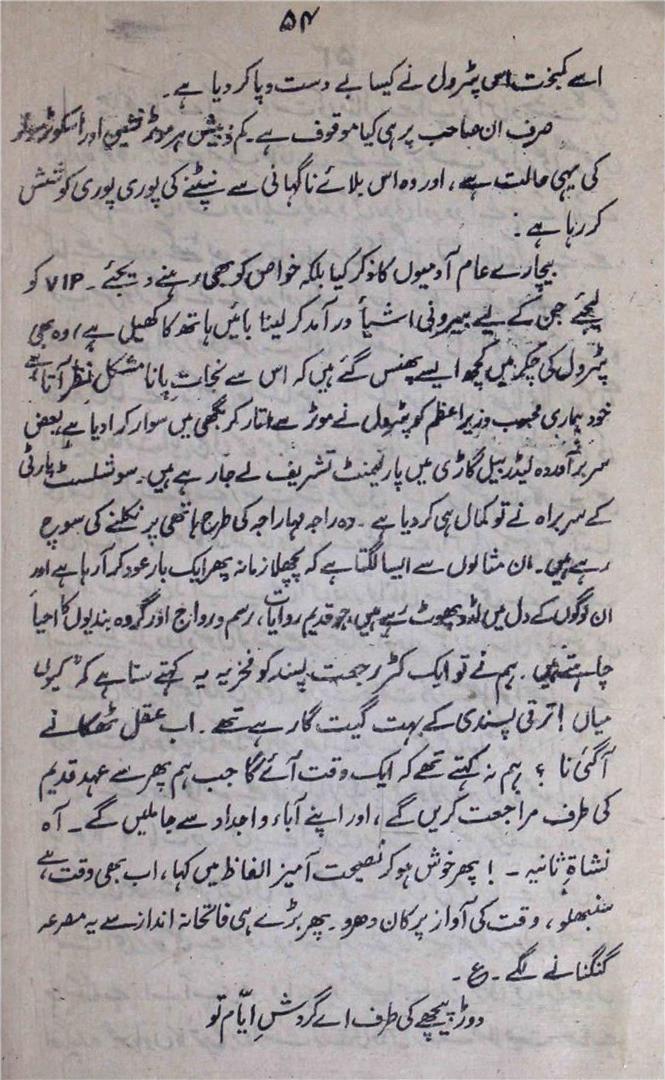 ۵۴
اسے کمبخت اس پٹرول نے کیسا بے دست و پا کر دیا ہے۔
صرف ان صاحب پر ہی کیا موقوف ہے۔ کم و بیش ہر موٹر نشین اور اسکوٹر سوار
کی یہی حالت ہے، اور وہ اس بلائے ناگہانی سے نپٹنے کی پوری پوری کوشش
کر رہا ہے۔
بیچارے عام آدمیوں کا ذکر کیا بلکہ خواص کو بھی رہنے دیجئے۔ VIP کو
لیجئے جن کے لیے بیرونی اشیأ درآمد کر لینا بائیں ہاتھ کا کھیل ہے، وہ بھی
پٹرول کی چکر میں کچھ ایسے پھنس گئے ہیں کہ اس سے نجات پانا مشکل نظر آتا ہے
خود ہماری محبوب وزیراعظم کو پٹرول نے موٹر سے اتار کر بگھی میں سوار کرا دیا ہے، بعض
سربرآوردہ لیڈر بیل گاڑی میں پارلیمنٹ تشریف لے جا رہے ہیں۔ سوشلسٹ پارٹی
کے سربراہ نے تو کمال ہی کر دیا ہے۔ وہ راجہ مہاراجہ کی طرح ہاتھی پر نکلنے کی سوچ
رہے ہیں۔ ان مثالوں سے ایسا لگتا ہے کہ پچھلا زمانہ پھر ایک بار عود کر آ رہا ہے اور
ان لوگوں کے دل میں لڈو پھوٹ رہے ہیں، جو قدیم روایات، رسم و رواج اور گروہ بندیوں کا احیأ
چاہتے ہیں۔ ہم نے تو ایک کٹر رجعت پسند کو فخریہ یہ کہتے سنا ہے کہ "کیوں
میاں! ترقی پسندی کے بہت گیت گا رہے تھے۔ اب عقل ٹھکانے
آ گئی نا ؟ ہم نہ کہتے تھے کہ ایک وقت آئے گا جب ہم پھر سے عہد قدیم
کی طرف مراجعت کریں گے، اور اپنے آباء و اجداد سے جا ملیں گے۔ آہ
نشاۃِ ثانیہ ۔ ! پھر خوش ہو کر نصیحت آمیز الفاظ میں کہا، اب بھی وقت ہے
سنبھلو، وقت کی آواز پر کان دھرو۔ پھر بڑے ہی فاتحانہ انداز سے یہ مصرعہ
گنگنانے لگے۔ ع۔
دوڑ پیچھے کی طرف اے گردشِ ایّام تو